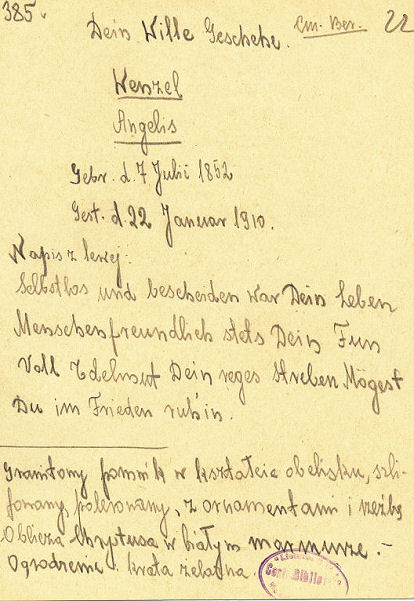 385. Dein Wille Geschehe. Cm. Ber. 22
Wenzel
Angelis
Gebr. d. 7 Julii 1852
Gest. d. 22 Januar 1910.
Napis z lewej.
Selbstlos und bescheiden war Dein Leben
Menschenfreundlich stets Dein Tun
Voll Edelmut Dein reges Streben Mögest
Du im Frieden ruh'in.
Granitowy pomnik w kształcie obelisku, szli-
fowany, polerowany, z ornamentami i rzeźbą
Oblicza Chrystusa w białym marmurze. -
Ogrodzenie - krata żelazna.